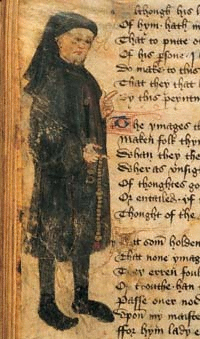 Although his l
Of hym hath in
That to putte ot
Of his psone I
Do make to this
That they that h
By this peyntur
The ymages th
Maken folk thyn
Whan they the
Wher as vnsigh
Of thoughtes go
Or entailed yf
Thought of the
Yit som holden
That none ymag
They erren foul
Of trouthe han
Passe ouer now
Vpon my maiste
ffor hym lady e